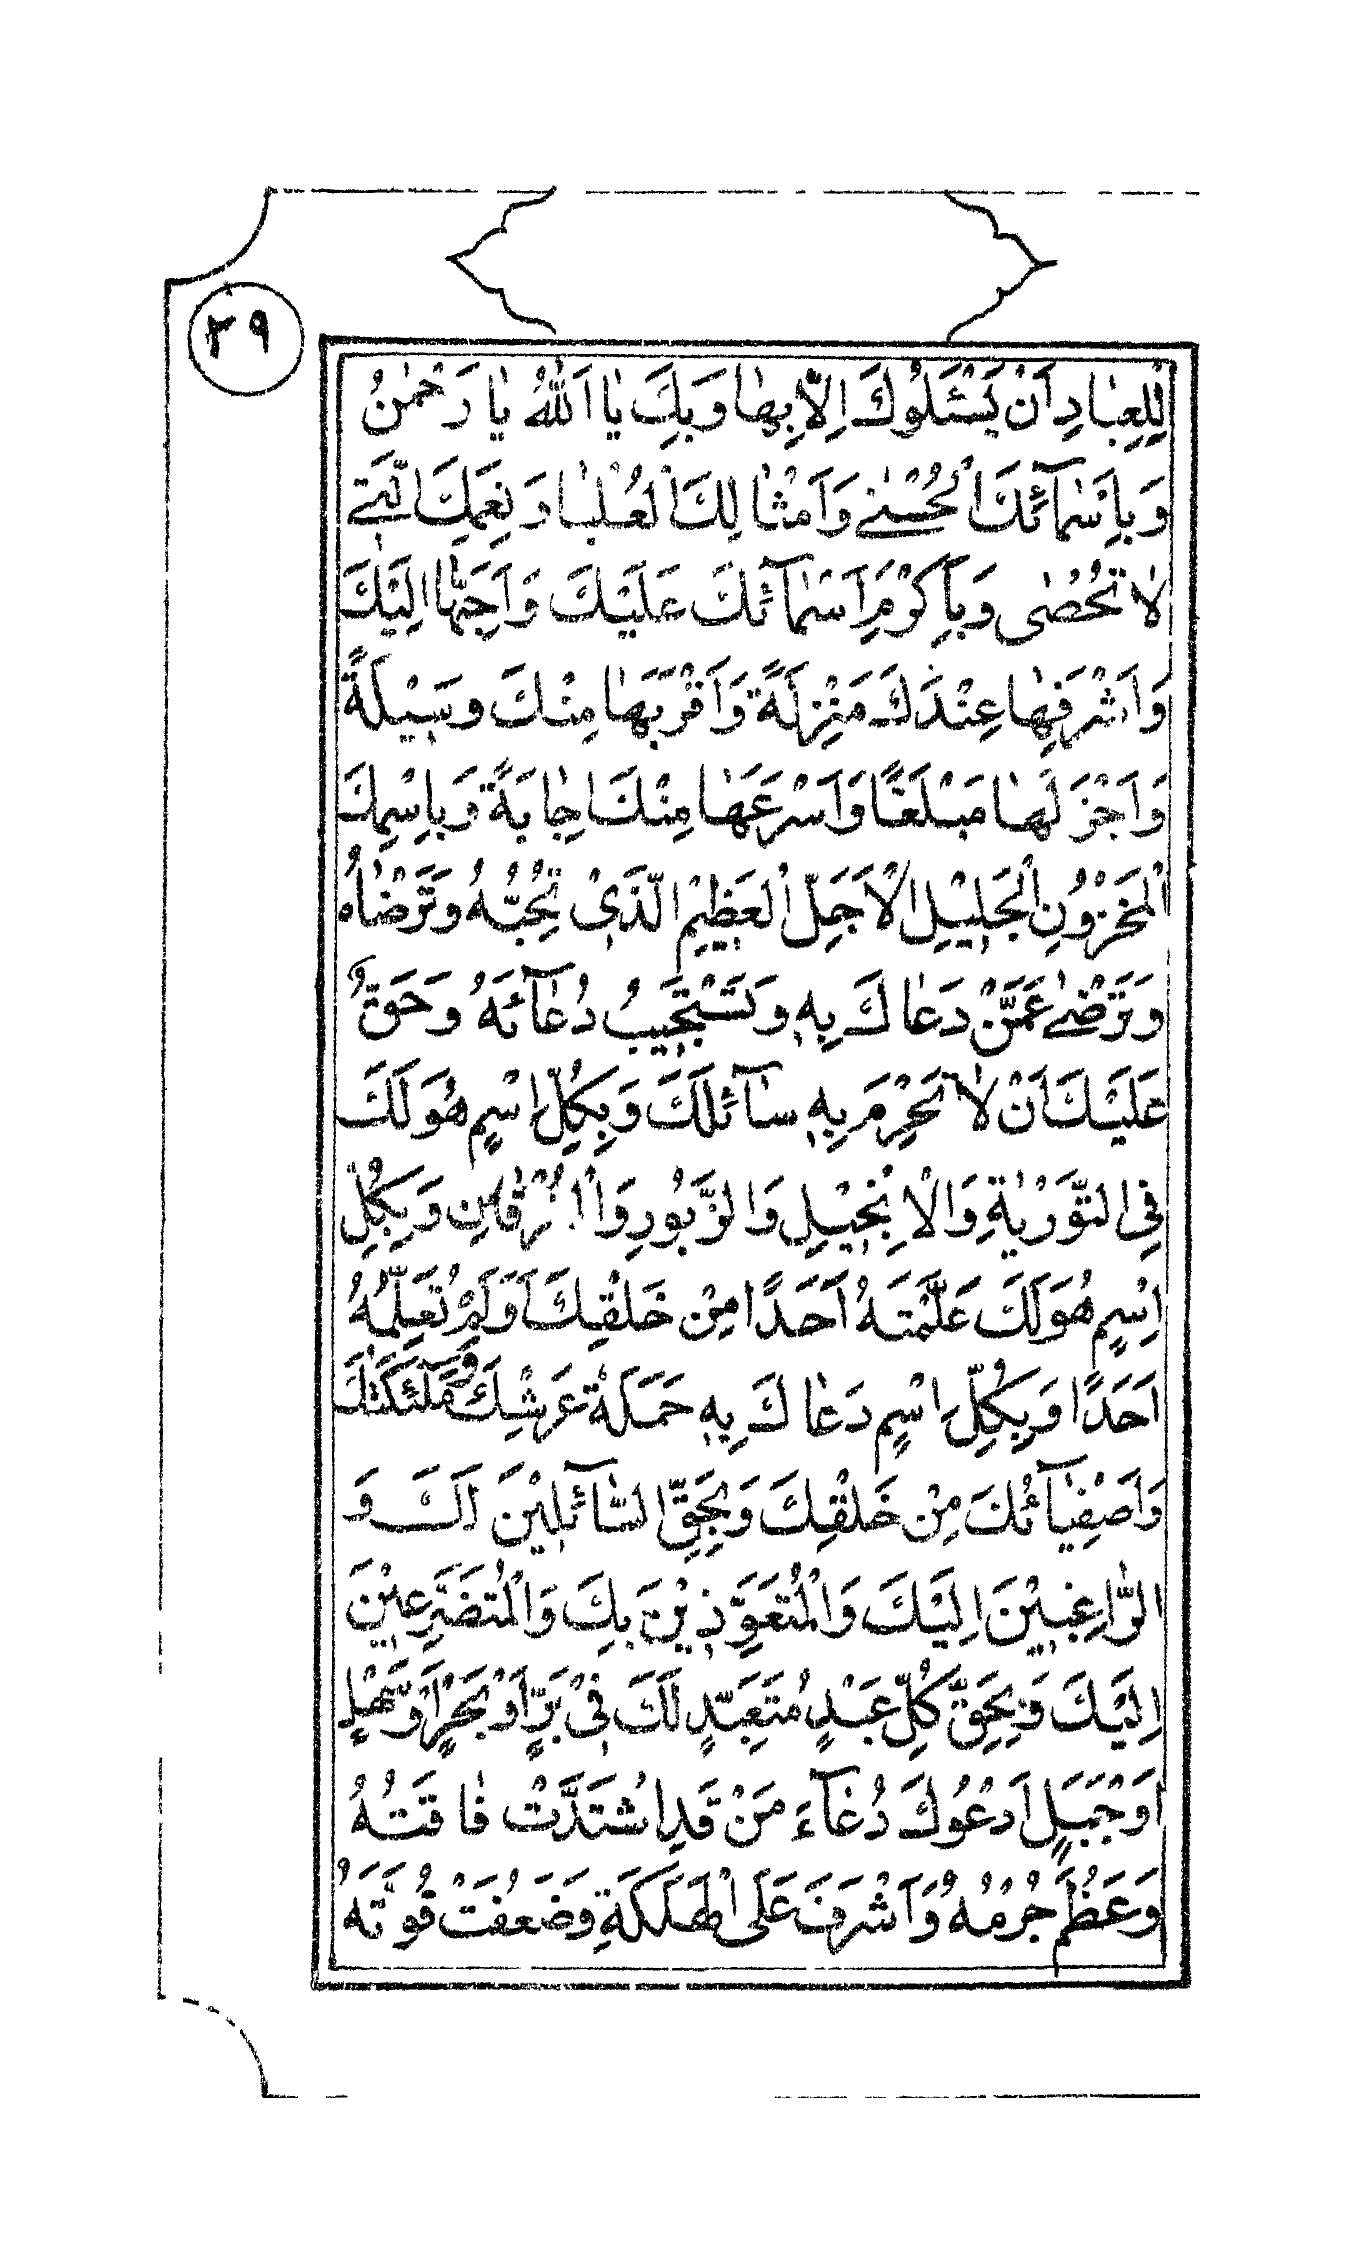 ٢٩
لِلْعِبٰادِ اَنْ يَسْئَلُوكَ اِلّٰا بِهٰا وَ بِكَ يٰا اَللّٰهُ يٰا رَحْمٰنُ
وَ بِاَسْمٰآئِكَ الْحُسْنٰى وَ اَمْثٰالِكَ الْعُلْيٰا وَ نِعَمِكَ الَّتِى
لٰا تُحْصٰى وَ بِاَكْرَمِ اَسْمٰآئِكَ عَلَيْكَ وَ اَحَبِّهٰا اِلَيْكَ
وَ اَشْرَفِهٰا عِنْدَكَ مَنْزِلَةً وَ اَقْرَبِهَا مِنْكَ وَسِيْلَةً
وَ اَجْزَلَهٰا مَبْلَغًا وَ اَسْرَعَهٰا مِنْكَ اِجٰابَةً وَ بِاسْمِكَ
الْمَخْزُونِ الْجَلِيْلِ الْاَجَلِّ الْعَظِيْمِ الَّذِىْ تُحِبُّهُ وَ تَرْضٰاهُ
وَ تَرْضٰى عَمَّنْ دَعٰاكَ بِهِ وَ تَسْتَجِيبُ دُعٰآئَهُ وَ حَقٌّ
عَلَيْكَ اَنْ لٰا تَحْرِمَ بِهِ سٰآئِلَكَ وَ بِكُلِّ اسْمٍ هُوَ لَكَ
فِى التَّوْرٰيةِ وَ الْاِنْجِيْلِ وَ الزَّبُورِ وَ الْفُرْقٰانِ وَ بِكُلِّ
اِسْمٍ هُوَ لَكَ عَلَّمْتَهُ اَحَدًا مِنْ خَلْقِكَ اَوَ لَمْ تُعَلِّمْهُ
اَحَدًا وَ بِكُلِّ اسْمٍ دَعٰاكَ بِهِ حَمَلَةُ عَرْشِكَ وَ مَلٰٓئِكَتُكَ
وَ اَصْفِيٰآئُكَ مِنْ خَلْقِكَ وَ بِحَقِّ السّٰآئِلِيْنَ لَكَ وَ
الرّٰاغِبِيْنَ اِلَيْكَ وَ الْمُتَعَوِّذِيْنَ بِكَ وَ الْمُتَضَرِّعِيْنَ
اِلَيْكَ وَ بِحَقِّ كُلِّ عَبْدٍ مُتَعَبِّدٍ لَكَ فِىْ بَرٍّ اَوْ بَحْرٍ اَوْ سَهْلٍ
اَوْ جَبَلٍ اَدْعُوكَ دُعٰآءَ مَنْ قَدِ اشْتَدَّتْ فٰاقَتُهُ
وَ عَظُمَ جُرْمُهُ وَ اَشْرَفَ عَلَى الْهَلَكَةِ وَ ضَعُفَتْ قُوَّتُهُ